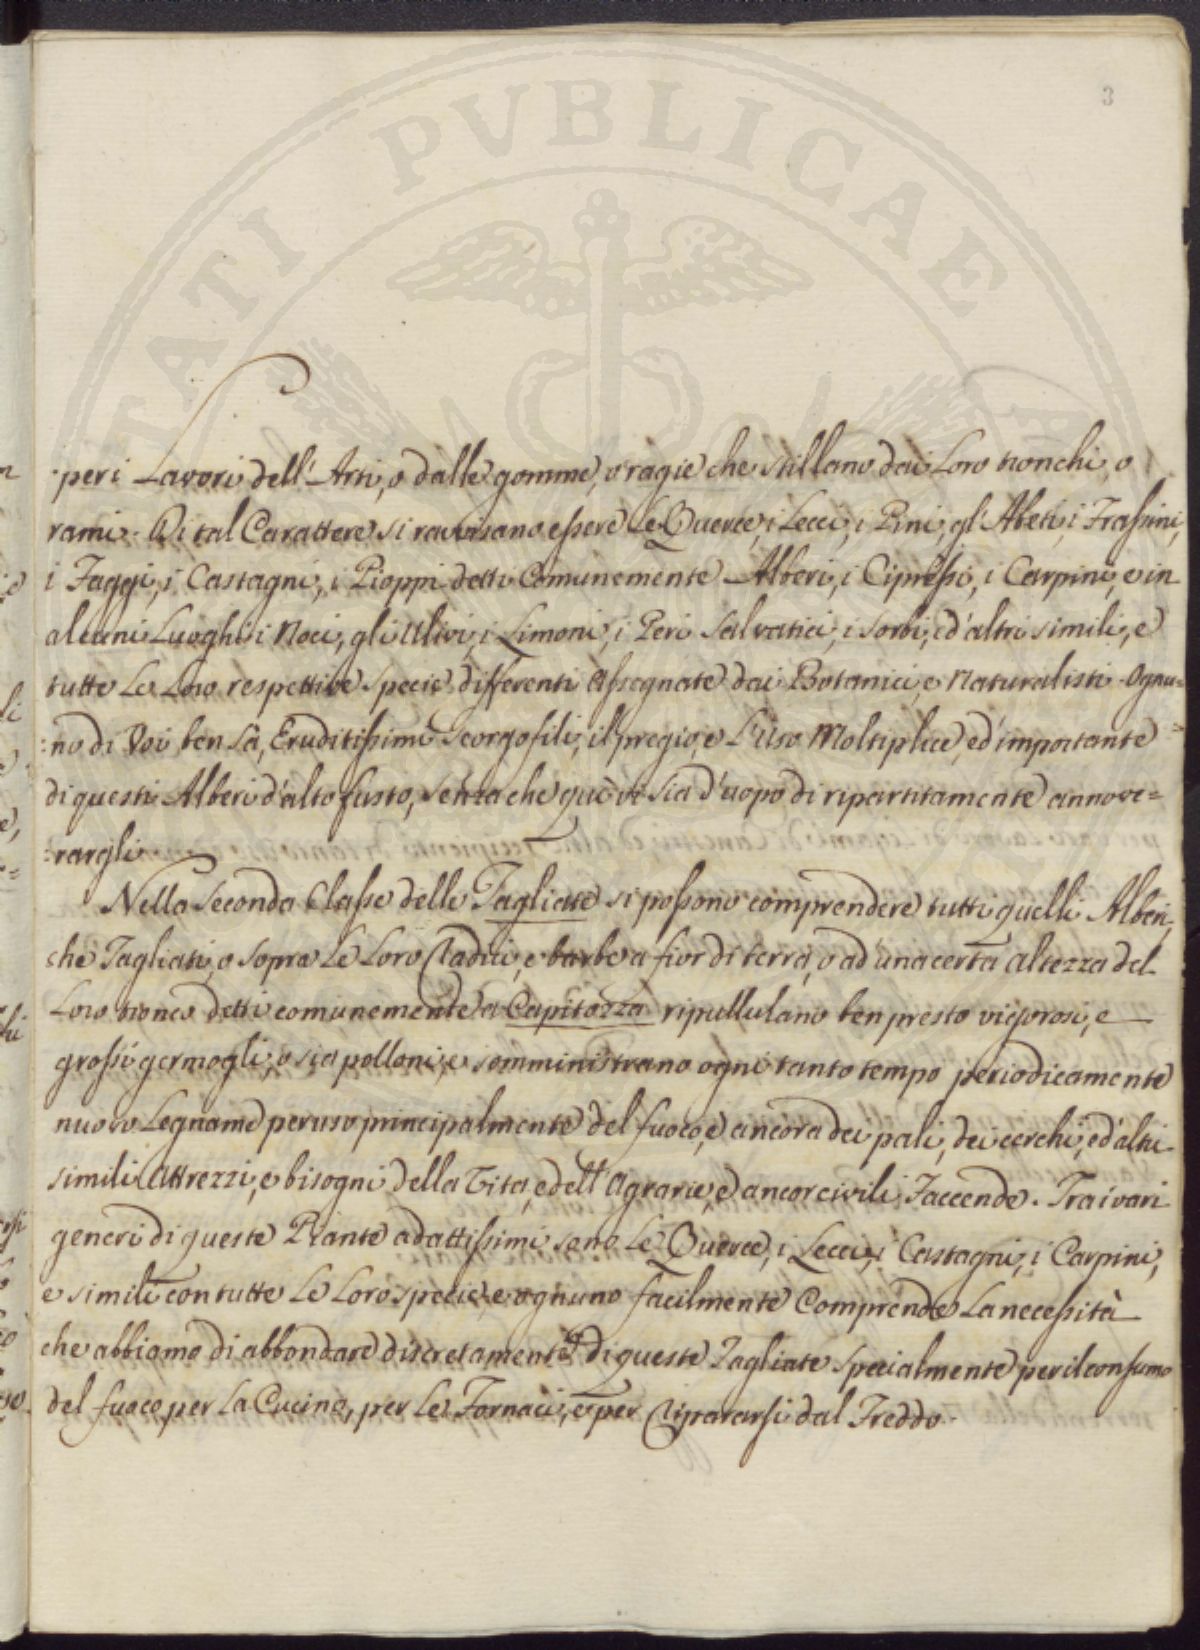 3
per i Lavori dell'Arti, o dalle gomme, o ragie che stillano dai Loro tronchi, o
rami. Di tal Carattere si ravvisano essere Le Querce, i Lecci, i Pini, gl'Abeti, i Frassini,
i Faggi, i Castagni, i Pioppi detti Comunemente Alberi, i Cipressi, i Carpini, e in
alcuni Luoghi i Noci, gli Ulivi, i Limoni, i Peri Salvatici, i Sorbi, ed'altri simili, e
tutte Le Loro respettive specie differenti assegnate dai Botanici, e Naturalisti. Ognu=
:no di Voi ben sà, Eruditissimi Georgofili, il pregio, e L'Uso Moltiplice, ed'importante
di questi Alberi d'alto fusto, senza che quì vi sia d'uopo di ripartitamente annove=
:rargli.
Nella Seconda Classe delle Tagliate si possono comprendere tutti quelli Alberi,
che Tagliati, o sopra Le Loro Radici, e barbe a fior di terra, o ad'una certa altezza del
Loro tronco detti comunemente a Capitozza ripullulano ben presto vigorosi, e
grossi germogli, o sia polloni, e somministrano ogni tanto tempo periodicamente
nuovo Legname per uso principalmente del fuoco, e ancora dei pali, dei cerchi, ed'altri
simili Attrezzi, e bisogni della Vita, e dell'Agrarie, e ancor civili Faccende. Tra i vari
generi di queste Piante adattissimi sono Le Querce, i Lecci, i Castagni, i Carpini,
e simili con tutte Le Loro specie, e ognuno facilmente Comprende La necessità
che abbiamo di abbondare discretamente di queste Tagliate specialmente per il consumo
del fuoco per La Cucina, per Le Fornaci, e per Ripararsi dal Freddo.
PUBLICAE